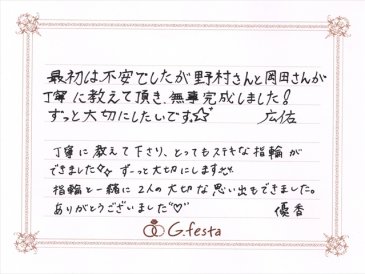 最初は不安でしたが野村さんと岡田さんが
丁寧に教えて頂き、無事完成しました!
ずっと大切にしたいです☆☆ 広佑
丁寧に教えて下さり、とってもステキな指輪が
できました☆☆ ずーっと大切にします!!
指輪と一緒に2人の大切な思い出もできました。
ありがとうございました"♡" 優香
G.festa